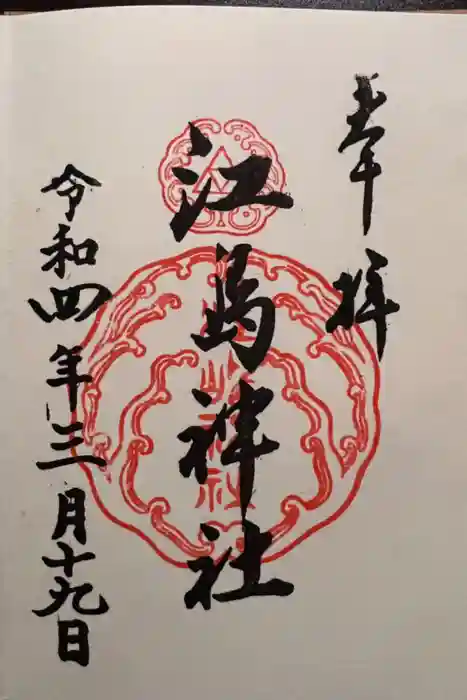 奉拝
江島神社
令和四年三月十九日